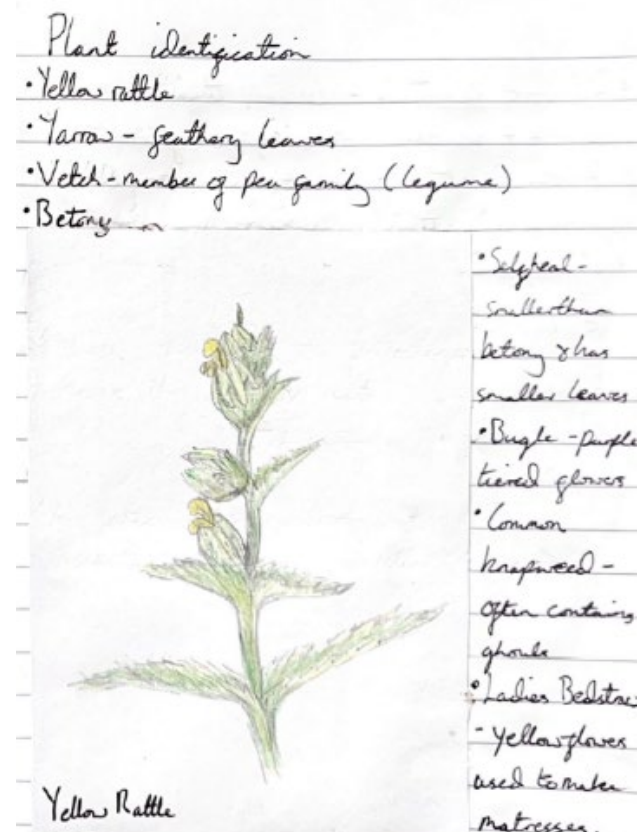 Plant identification
• Yellow rattle
• Yarrow - feathery leaves
• Vetch - member of pea family (legume)
• Betony
• Selfheal -
smaller than
betony & has
smaller leaves
• Bugle - purple
tiered flowers
• Common
knapweed -
often contains
ghouls
• Ladies Bedstraw
- Yellow flowers
used to make
matresses.
Yellow Rattle